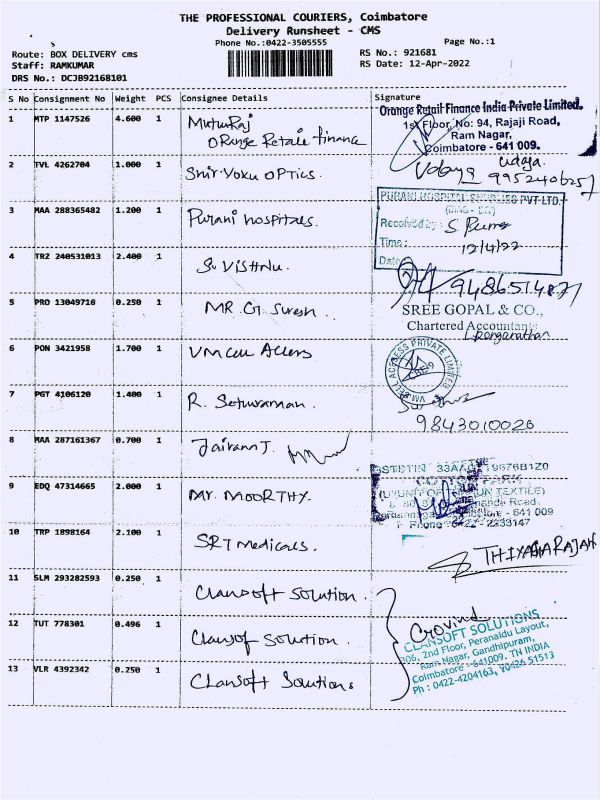 THE PROFESSIONAL COURIERS, Coimbatore
Delivery Runsheet - CMS
Phone No.:0422-3505555
Page No.:1
Route: BOX DELIVERY cms
RS No.: 921681
Staff: RAMKUMAR
RS Date: 12-Apr-2022
DRS No.: DCJB92168101
S No Consignment No Weight PCS Consignee Details Signature
1 MTP 1147526 4.600 1 Muturaj
Orange Retail finance
Orange Retail Finance India Private Limited.
1st Floor, No: 94, Rajaji Road,
Ram Nagar,
Coimbatore - 641 009.
Udaya Udaya
9952406257
2 TVL 4262704 1.000 1 Shri Yoku OPTics.
3 MAA 288365482 1.200 1 Purani hospitals.
PURANI HOSPITAL SUPPLIES PVT LTD.
Received by:
Time:
12/4/22
Date
4 TRZ 240531013 2.400 1 Sri Vishnu.
9486514871
5 PRO 13049716 0.250 1 MR. G. Suresh.
SREE GOPAL & CO.,
Chartered Accountants
L. Renganathan
6 PON 3421958 1.700 1 VM Cell Access
VM CELL ACCESS PRIVATE LIMITED
7 PGT 4106120 1.400 1 R. Seturaman.
9843010026
8 MAA 287161367 0.700 1 Jairam J.
9 EDQ 47314665 2.000 1 Mr. MOORTHY.
COTTON PARK
- 641 009
Phone : 0422 - 2233147
10 TRP 1898164 2.100 1 SRT Medicals.
THIYAGARAJAN
11 SLM 293282593 0.250 1 Clansoft Solution.
12 TUT 778301 0.496 1 Clansof Solution.
Govind
CLANSOFT SOLUTIONS
306, 2nd Floor, Peranaidu Layout,
Ram Nagar, Gandhipuram,
Coimbatore - 641009. TN INDIA
Ph : 0422-4204163, 90426 51513
13 VLR 4392342 0.250 1 Clansoft Solutions